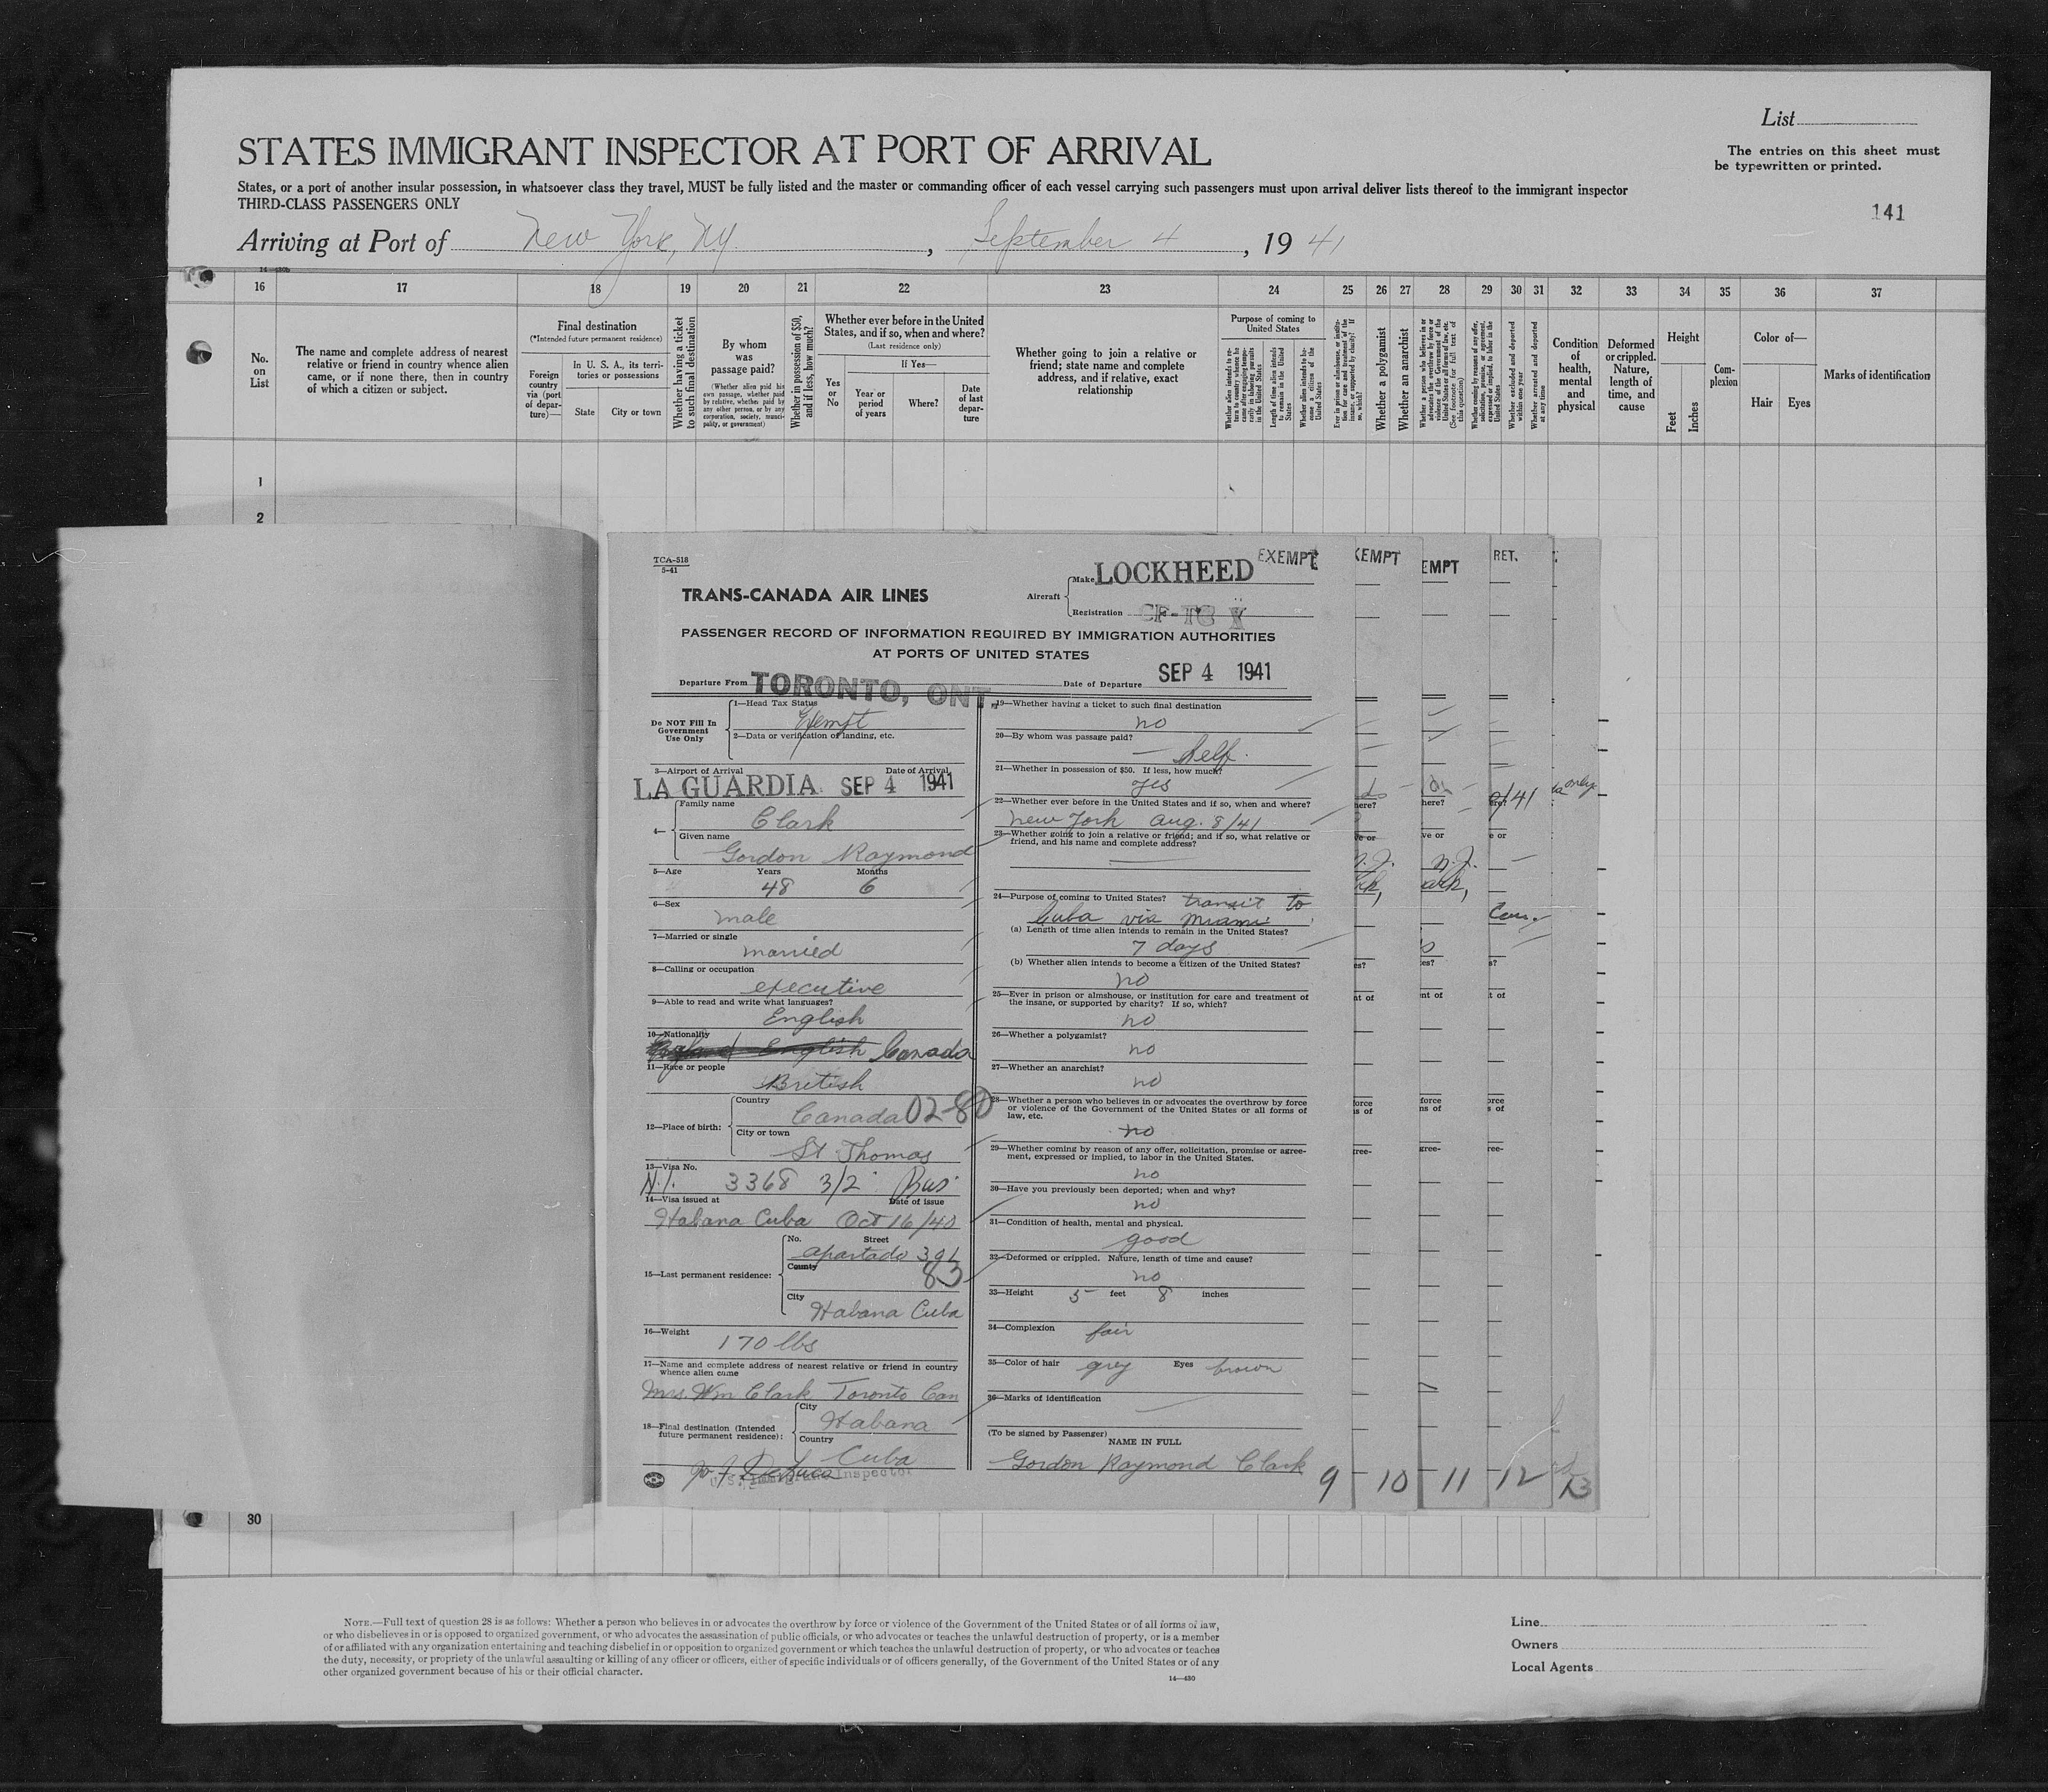 List
STATES IMMIGRANT INSPECTOR AT PORT OF ARRIVAL
The entries on this sheet must
be typewritten or printed.
States, or a port of another insular possession, in whatsoever class they travel, MUST be fully listed and the master or commanding officer of each vessel carrying such passengers must upon arrival deliver lists thereof to the immigrant inspector
THIRD-CLASS PASSENGERS ONLY
141
Arriving at Port of New York, NY. , September 4, 1941
16 17 18 19 20 21 22 23 24 25 26 27 28 29 30 31 32 33 34 35 36 37
No. on List
The name and complete address of nearest relative or friend in country whence alien came, or if none there, then in country of which a citizen or subject.
Final destination
(*Intended future permanent residence)
Foreign country via (port of departure)—
In U. S. A., its territories or possessions
State
City or town
Whether having a ticket to such final destination
By whom was passage paid?
(Whether alien paid his own passage, whether paid by relative, whether paid by any other person, or by any corporation, society, municipality, or government)
Whether in possession of $50, and if less, how much?
Whether ever before in the United States, and if so, when and where?
(Last residence only)
Yes or No
If Yes—
Year or period of years
Where?
Date of last departure
Whether going to join a relative or friend; state name and complete address, and if relative, exact relationship
Purpose of coming to United States
Length of time alien intends to remain in the United States
Whether alien intends to become a citizen of the United States
Whether a polygamist
Whether an anarchist
Whether excluded and deported within one year
Whether arrested and deported at any time
Condition of health, mental and physical
Deformed or crippled. Nature, length of time, and cause
Height
Feet
Inches
Complexion
Color of—
Hair
Eyes
Marks of identification
1
2
TCA-518
5-41
TRANS-CANADA AIR LINES
Aircraft
Make LOCKHEED
EXEMPT
Registration CF-TC X
PASSENGER RECORD OF INFORMATION REQUIRED BY IMMIGRATION AUTHORITIES
AT PORTS OF UNITED STATES
Departure From TORONTO, ONT. Date of Departure SEP 4 1941
Do NOT Fill In Government Use Only
1—Head Tax Status
Exempt
2—Data or verification of landing, etc.
3—Airport of Arrival Date of Arrival
LA GUARDIA SEP 4 1941
4— Family name
Clark
Given name
Gordon Raymond
5—Age Years Months
48 6
6—Sex
male
7—Married or single
married
8—Calling or occupation
executive
9—Able to read and write what languages?
English
10—Nationality
English Canada
11—Race or people
British
12—Place of birth:
Country
Canada 02-80
City or town
St Thomas
13—Visa No.
N.I. 3368 3/2 Bus
14—Visa issued at Date of issue
Habana Cuba Oct 16/40
15—Last permanent residence:
No. Street
apartado 391
County
83
City
Habana Cuba
16—Weight
170 lbs
17—Name and complete address of nearest relative or friend in country whence alien came
Mrs. Wm Clark Toronto Can
18—Final destination (Intended future permanent residence):
City
Habana
Country
Cuba
U.S. Immigrant Inspector
19—Whether having a ticket to such final destination
no
20—By whom was passage paid?
— Self.
21—Whether in possession of $50. If less, how much?
yes
22—Whether ever before in the United States and if so, when and where?
New York Aug. 8/41
23—Whether going to join a relative or friend; and if so, what relative or
friend, and his name and complete address?
24—Purpose of coming to United States? transit to
Cuba via Miami
(a) Length of time alien intends to remain in the United States?
7 days
(b) Whether alien intends to become a citizen of the United States?
no
25—Ever in prison or almshouse, or institution for care and treatment of
the insane, or supported by charity? If so, which?
no
26—Whether a polygamist?
no
27—Whether an anarchist?
no
28—Whether a person who believes in or advocates the overthrow by force
or violence of the Government of the United States or all forms of
law, etc.
no
29—Whether coming by reason of any offer, solicitation, promise or agree-
ment, expressed or implied, to labor in the United States.
no
30—Have you previously been deported; when and why?
no
31—Condition of health, mental and physical.
good
32—Deformed or crippled. Nature, length of time and cause?
no
33—Height 5 feet 8 inches
34—Complexion fair
35—Color of hair grey Eyes brown
36—Marks of identification
(To be signed by Passenger)
NAME IN FULL
Gordon Raymond Clark
9 10 11 12 13
30
NOTE.—Full text of question 28 is as follows: Whether a person who believes in or advocates the overthrow by force or violence of the Government of the United States or of all forms of law,
or who disbelieves in or is opposed to organized government, or who advocates the assassination of public officials, or who advocates or teaches the unlawful destruction of property, or is a member
of or affiliated with any organization entertaining and teaching disbelief in or opposition to organized government or which teaches the unlawful destruction of property, or who advocates or teaches
the duty, necessity, or propriety of the unlawful assaulting or killing of any officer or officers, either of specific individuals or of officers generally, of the Government of the United States or of any
other organized government because of his or their official character.
14—430
Line
Owners
Local Agents